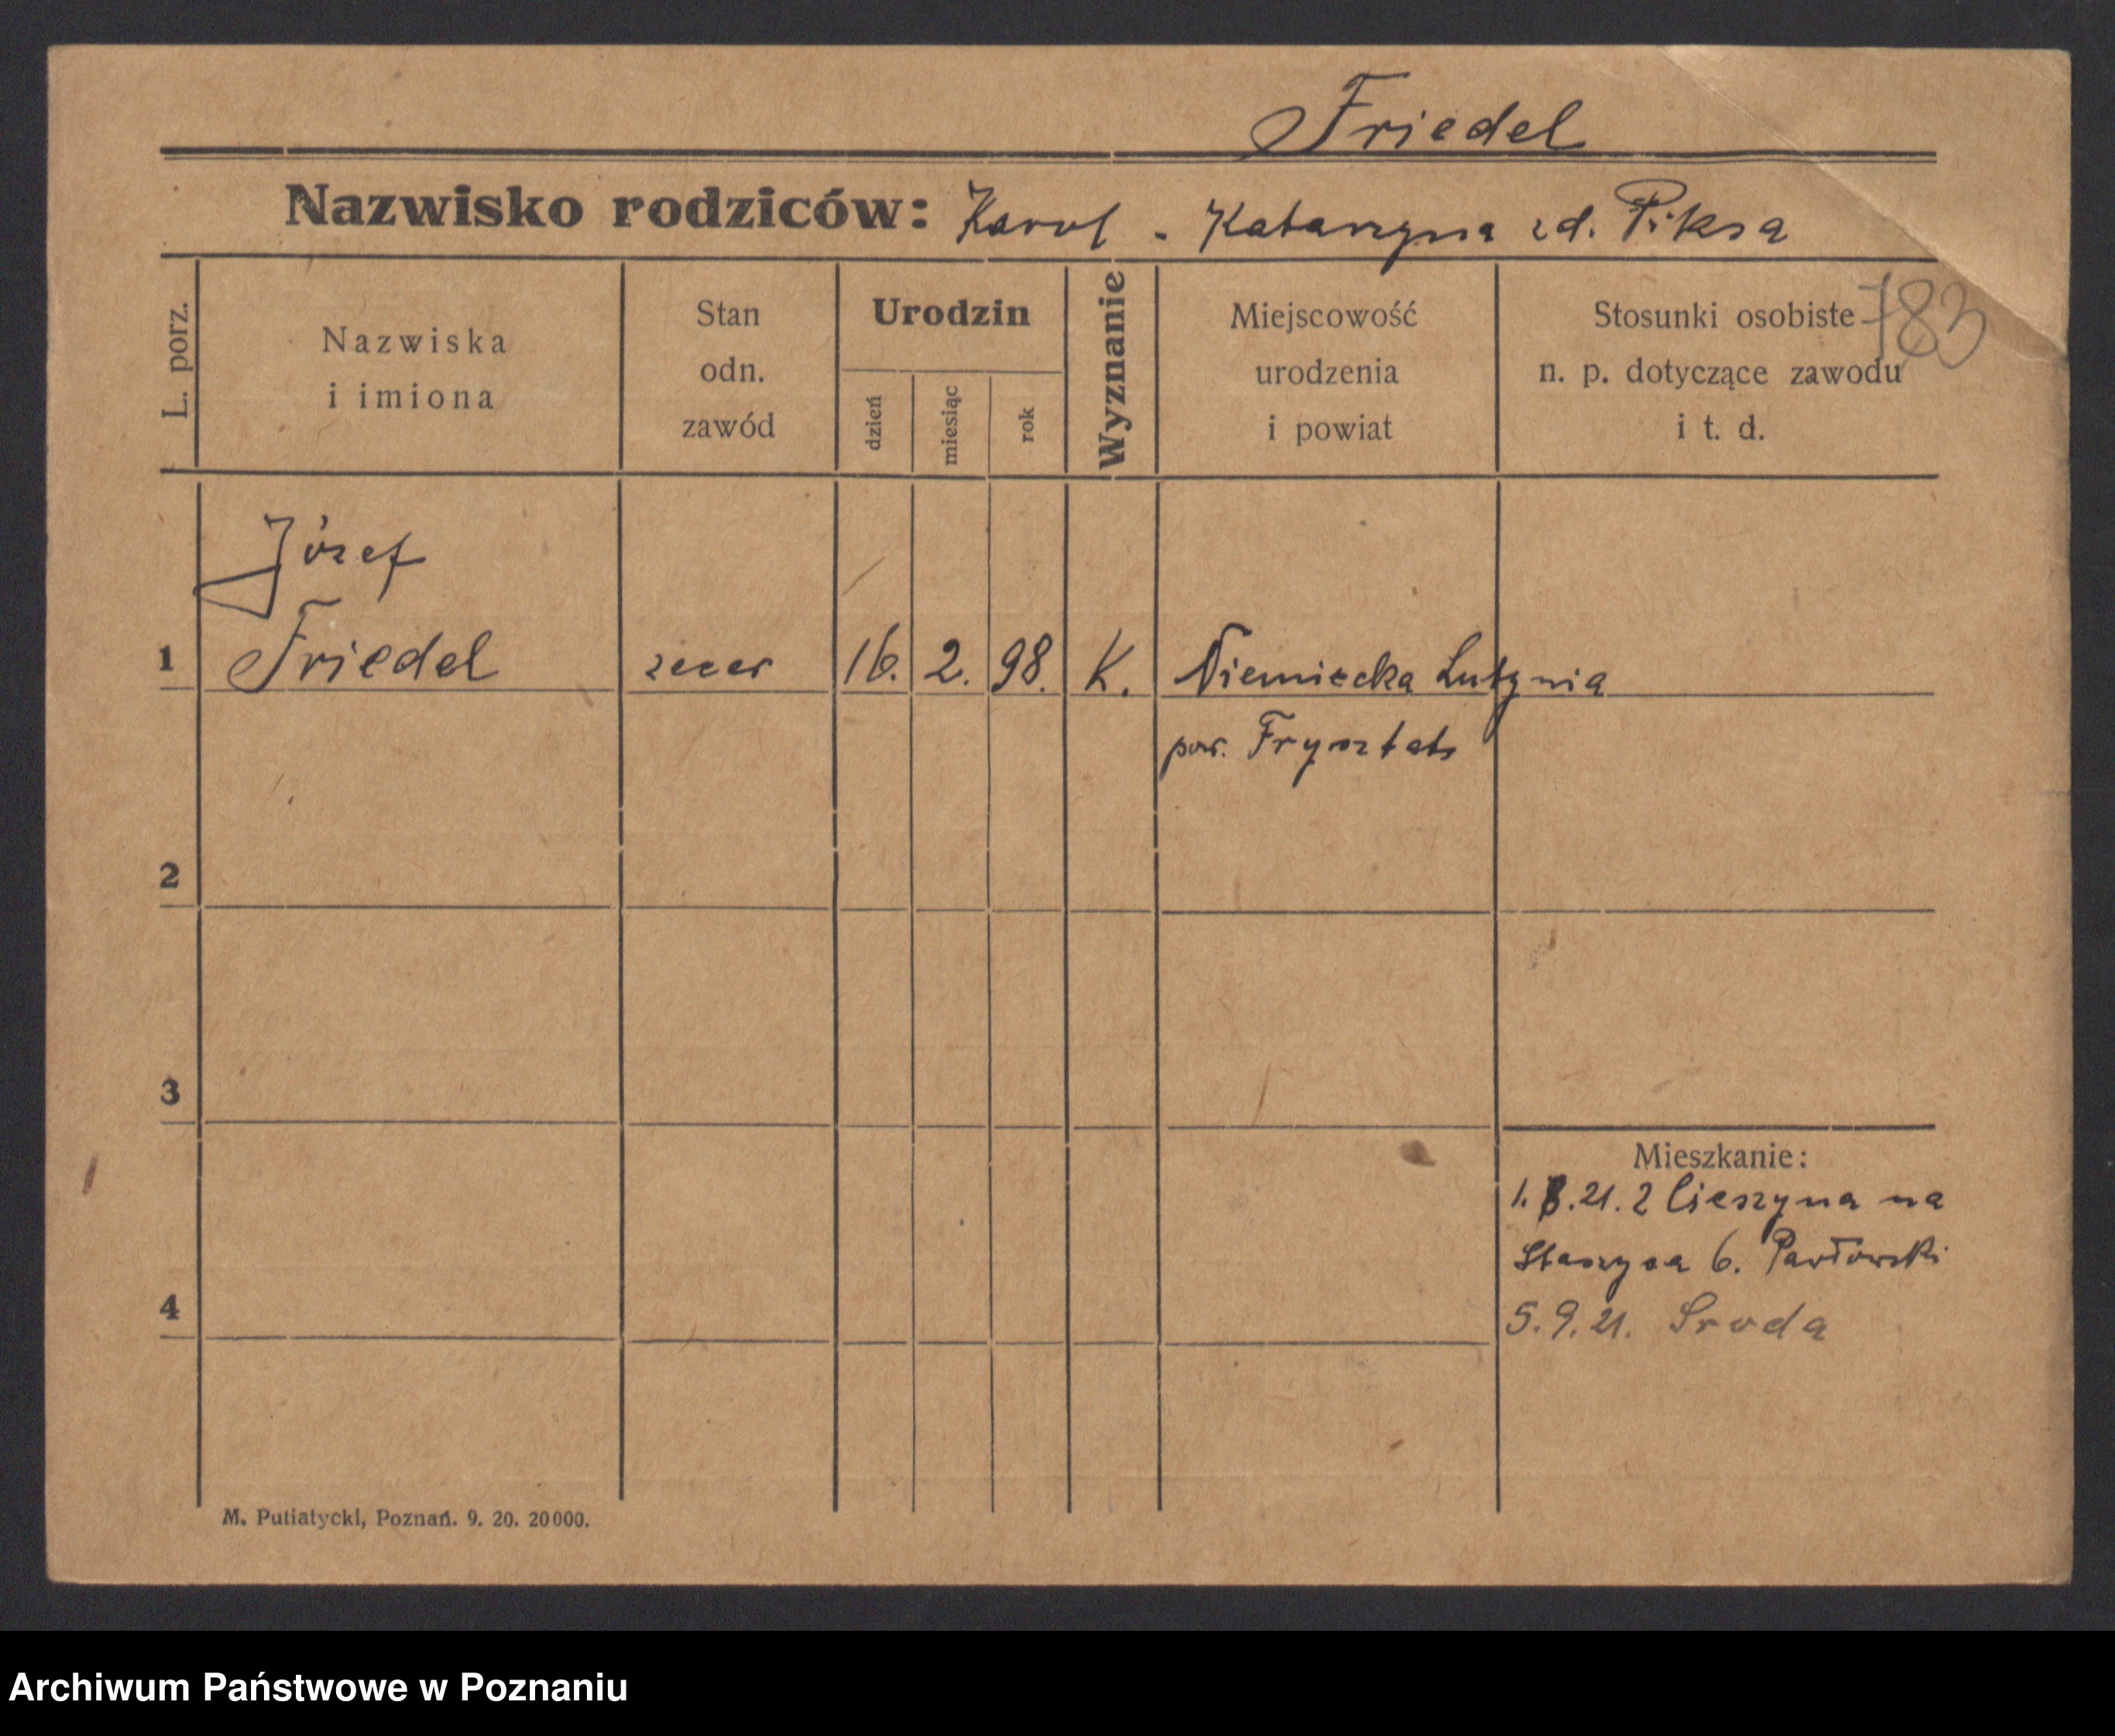 Friedel
Nazwisko rodziców: Karol - Katarzyna zd. Piksa
783
L. porz.
Nazwiska
i imiona
Stan
odn.
zawód
Urodzin
dzień
miesiąc
rok
Wyznanie
Miejscowość
urodzenia
i powiat
Stosunki osobiste
n. p. dotyczące zawodu
i t. d.
Józef
1 Friedel zecer 16. 2. 98. K. Niemiecka Lutynia
pow. Frysztat
2
3
Mieszkanie:
1. 8. 21. z Cieszyna na
Staszyca 6. Pawłowski
4
5. 9. 21. Sroda
M. Putiatycki, Poznań. 9. 20. 20000.
Archiwum Państwowe w Poznaniu